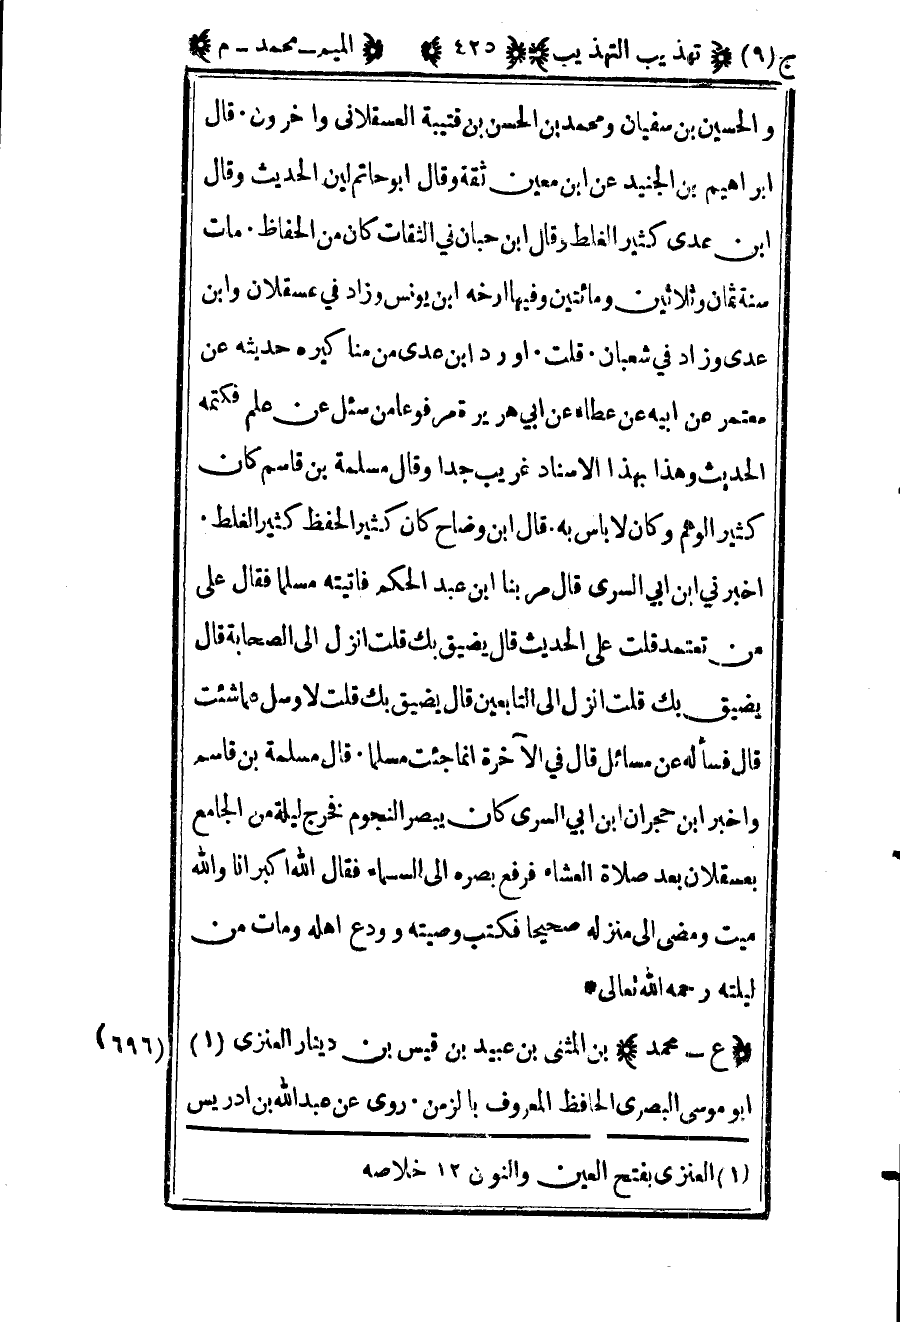 ج (٩) ﴿ تهذيب التهذيب ﴾ ﴿ ٤٢٥ ﴾ ﴿ الميم - محمد - م ﴾
والحسين بن سفيان ومحمد بن الحسن بن قتيبة العسقلانى واخرون · قال
ابراهيم بن الجنيد عن ابن معين ثقة وقال ابو حاتم لين الحديث وقال
ابن عدى كثير الغلط وقال ابن حبان في الثقات كان من الحفاظ · مات
سنة ثمان وثلاثين ومائتين وفيها ارخه ابن يونس وزاد في عسقلان وابن
عدى وزاد في شعبان · قلت · اورد ابن عدى من مناكيره حديثه عن
معتمر عن ابيه عن عطاء عن ابي هريرة مرفوعا من سئل عن علم فكتمه
الحديث وهذا بهذا الاسناد غريب جدا وقال مسلمة بن قاسم كان
كثير الوهم وكان لا باس به · قال ابن وضاح كان كثير الحفظ كثير الغلط ·
اخبرني ابن ابي السرى قال مر بنا ابن عبد الحكم فاتيته مسلما فقال على
من تعتمد قلت على الحديث قال يضيق بك قلت انزل الى الصحابة قال
يضيق بك قلت انزل الى التابعين قال يضيق بك قلت لا وسل ما شئت
قال فسأله عن مسائل قال في الآخرة انما جئت مسلما · قال مسلمة بن قاسم
واخبر ابن حجر ان ابن ابي السرى كان يبصر النجوم فخرج ليلة من الجامع
بعسقلان بعد صلاة العشاء فرفع بصره الى السماء فقال الله اكبر انا والله
ميت ومضى الى منزله صحيحا فكتب وصيته وودع اهله ومات من
ليلته رحمه الله تعالى *
﴿ ع - محمد ﴾ بن المثنى بن عبيد بن قيس بن دينار العنزى (١) (٦٩٦)
ابو موسى البصرى الحافظ المعروف بالزمن · روى عن عبدالله بن ادريس
(١) العنزى بفتح العين والنون ١٢ خلاصه